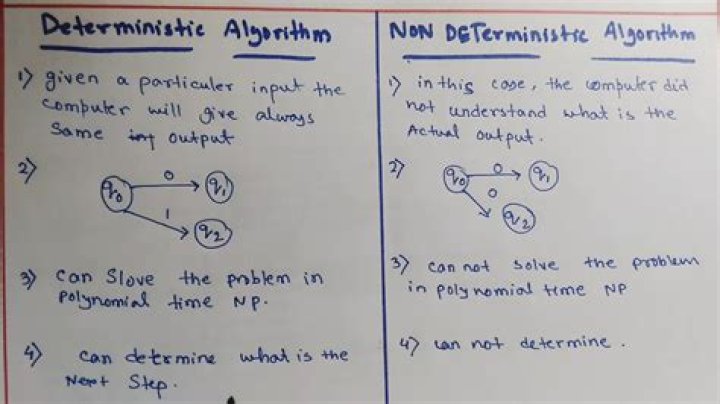 Deterministic Algorithm
1) given a particuler input the
computer will give always
same output
2)
q0 0 q1
1
q2
3) can Slove the problem in
polynomial time NP.
4) can determine what is the
Next Step.
NON DETerministic Algorithm
1) in this case, the computer did
not understand what is the
Actual output.
2)
q0 0 q1
0
q2
3) can not solve the problem
in polynomial time NP
4) can not determine.